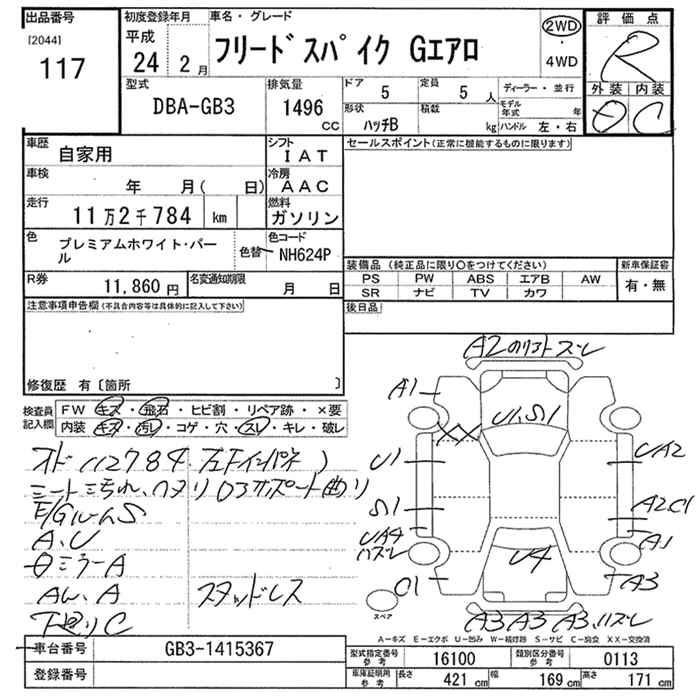 出品番号
[2044]
117
初度登録年月
平成
24 2月
車名・グレード
フリードスパイク Gエアロ
2WD
・
4WD
評価点
R
外装 内装
C
型式
DBA-GB3
排気量
1496
CC
ドア
5
定員
5人
形状
ハッチB
積載
kg
ディーラー・並行
モデル年式 年
ハンドル 左・右
車歴
自家用
シフト
IAT
車検
年 月( 日)
冷房
AAC
走行
11万2千784 km
燃料
ガソリン
色
プレミアムホワイト・パール
色替
色コード
NH624P
R券
11,860円
名変通知期限
月 日
セールスポイント(正常に機能するものに限ります)
装備品(純正品に限り○をつけてください)
PS PW ABS エアB AW
SR ナビ TV カワ
新車保証書
有・無
後日品
注意事項申告欄(不具合内容等は具体的に記入して下さい)
修復歴 有〔箇所 〕
検査員記入欄
FW キズ・飛石・ヒビ割・リペア跡・×要
内装 キズ・汚レ・コゲ・穴・スレ・キレ・破レ
オド112784
E/GルームS
A、U
ミラーA
AW、A
スタッドレス
A1
U1、S1
U1
UA2
S1
A2C1
UA4
ハズレ
A1
U4
C1
A3
A3 A3 A3、ハズレ
スペア
A−キズ E−エクボ U−凹み W−補修跡 S−サビ C−腐食 XX−交換済
車台番号
GB3-1415367
登録番号
型式指定番号
参考
16100
類別区分番号
参考
0113
車庫証明用
参考
長さ 421 cm
幅 169 cm
高さ 171 cm